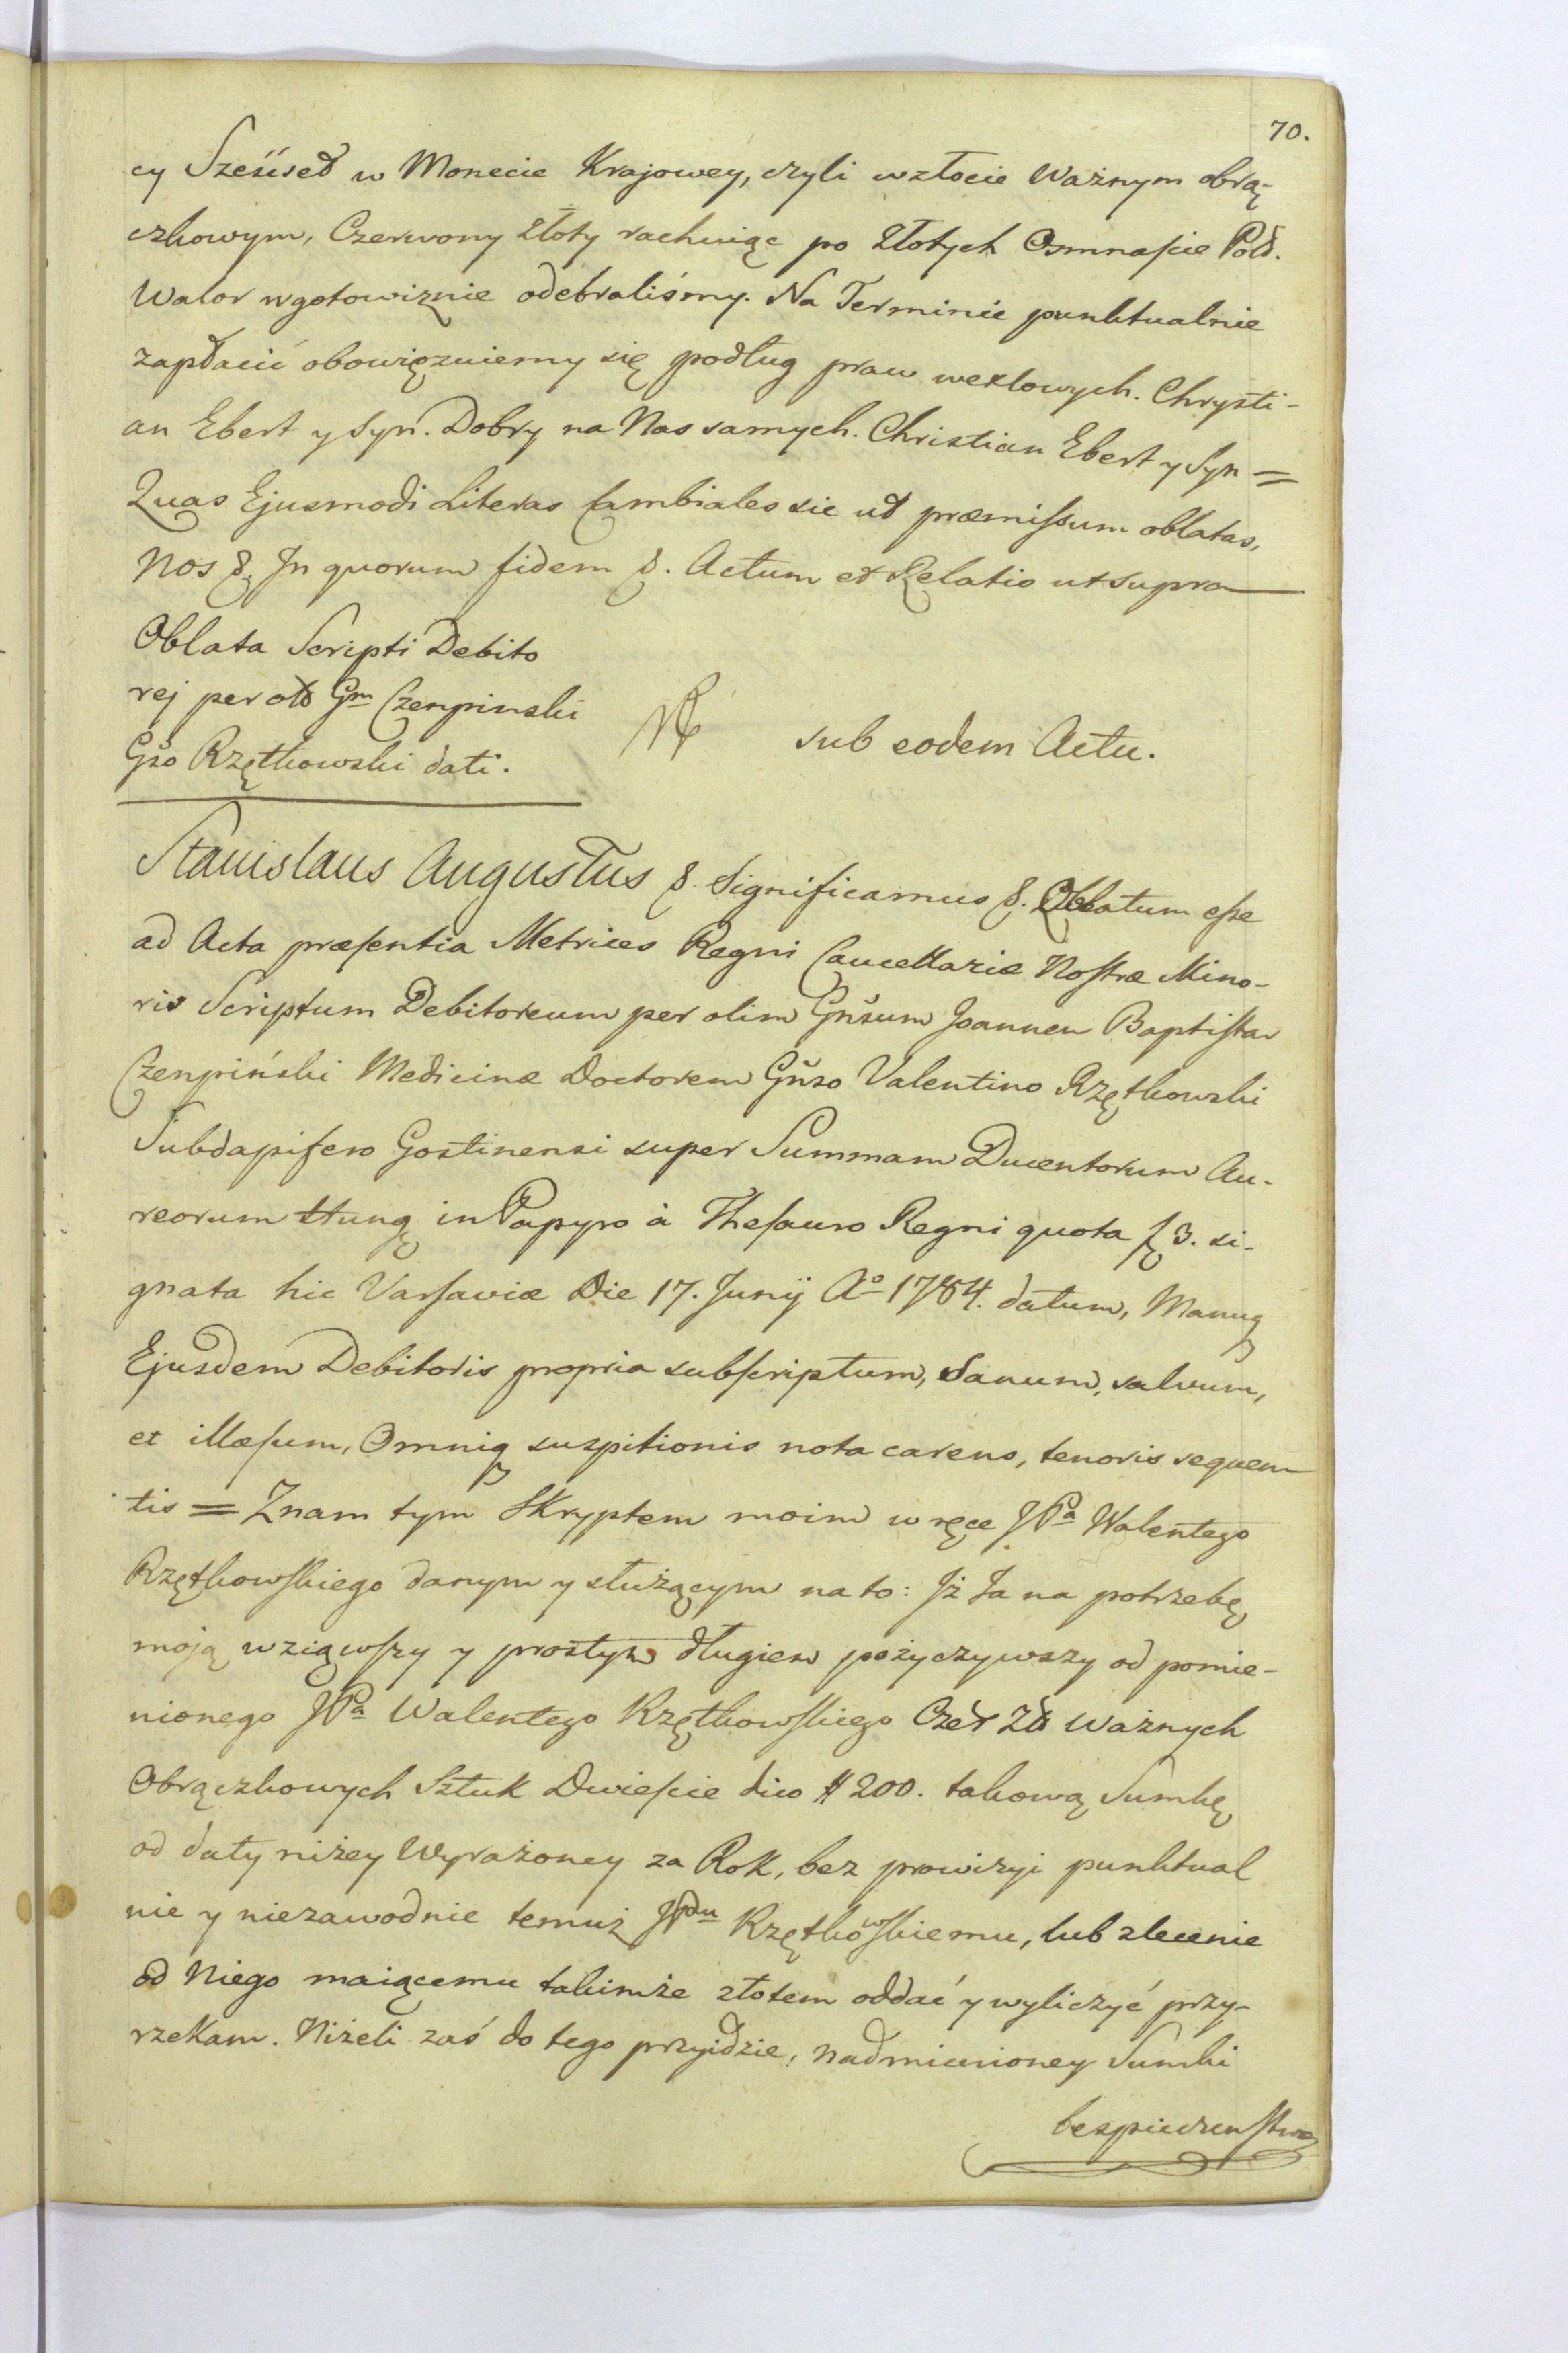 70.
cy Sześćset w Monecie Krajowey, czyli wzłocie Ważnym obrą-
czkowym, Czerwony Złoty rachuiąc po Złotych Osmnaście Pols.
Walor w gotowiznie odebraliśmy. Na Terminie punktualnie
zapłacić obowiązuiemy się podług praw wexlowych. Chrysti-
an Ebert y Syn. Dobry na Nas samych. Christian Ebert y Syn =
Quas Ejusmodi Literas Cambiales sic ut præmissum oblatas,
Nos &. In quorum fidem &. Actum et Relatio ut supra
Oblata Scripti Debito
rej per olt Gm Czenpinski
Gso Rzętkowski dati.
sub eodem Actu.
Stanislaus Augustus &. Significamus &. Oblatum esse
ad Acta præsentia Metrices Regni Cancellariæ Nostræ Mino-
ris Scriptum Debitoreum per olim Gnsum Joannem Baptistam
Czenpiński Medicinæ Doctorem Gnso Valentino Rzętkowski
Subdapifero Gostinensi super Summam Ducentorum Au-
reorum Hung in Papyro à Thesauro Regni quota f 3. si-
gnata hic Varsaviæ Die 17. Junij Aº 1784. datum, Manuq
Ejusdem Debitoris propria subscriptum, Sanum, salvum,
et illæsum, Omniq suspitionis nota carens, tenoris sequen-
tis = Znam tym Skryptem moim w ręce JPa Walentego
Rzętkowskiego danym y służącym na to: Jż Ja na potrzebę
moją wziąwszy y prostym długiem pożyczywszy od pomie-
nionego JPa Walentego Rzętkowskiego Czer Zł Ważnych
Obrączkowych Sztuk Dwieście dico # 200. takową Sumkę
od daty niżey Wyrażoney za Rok, bez prowizyi punktual
nie y niezawodnie temuż JPdu Rzętkowskiemu, lub zlecenie
od Niego maiącemu takimże złotem oddać y wyliczyć przy-
rzekam. Niżeli zaś do tego przyidzie, nadmienioney Sumki
bespieczenstwa